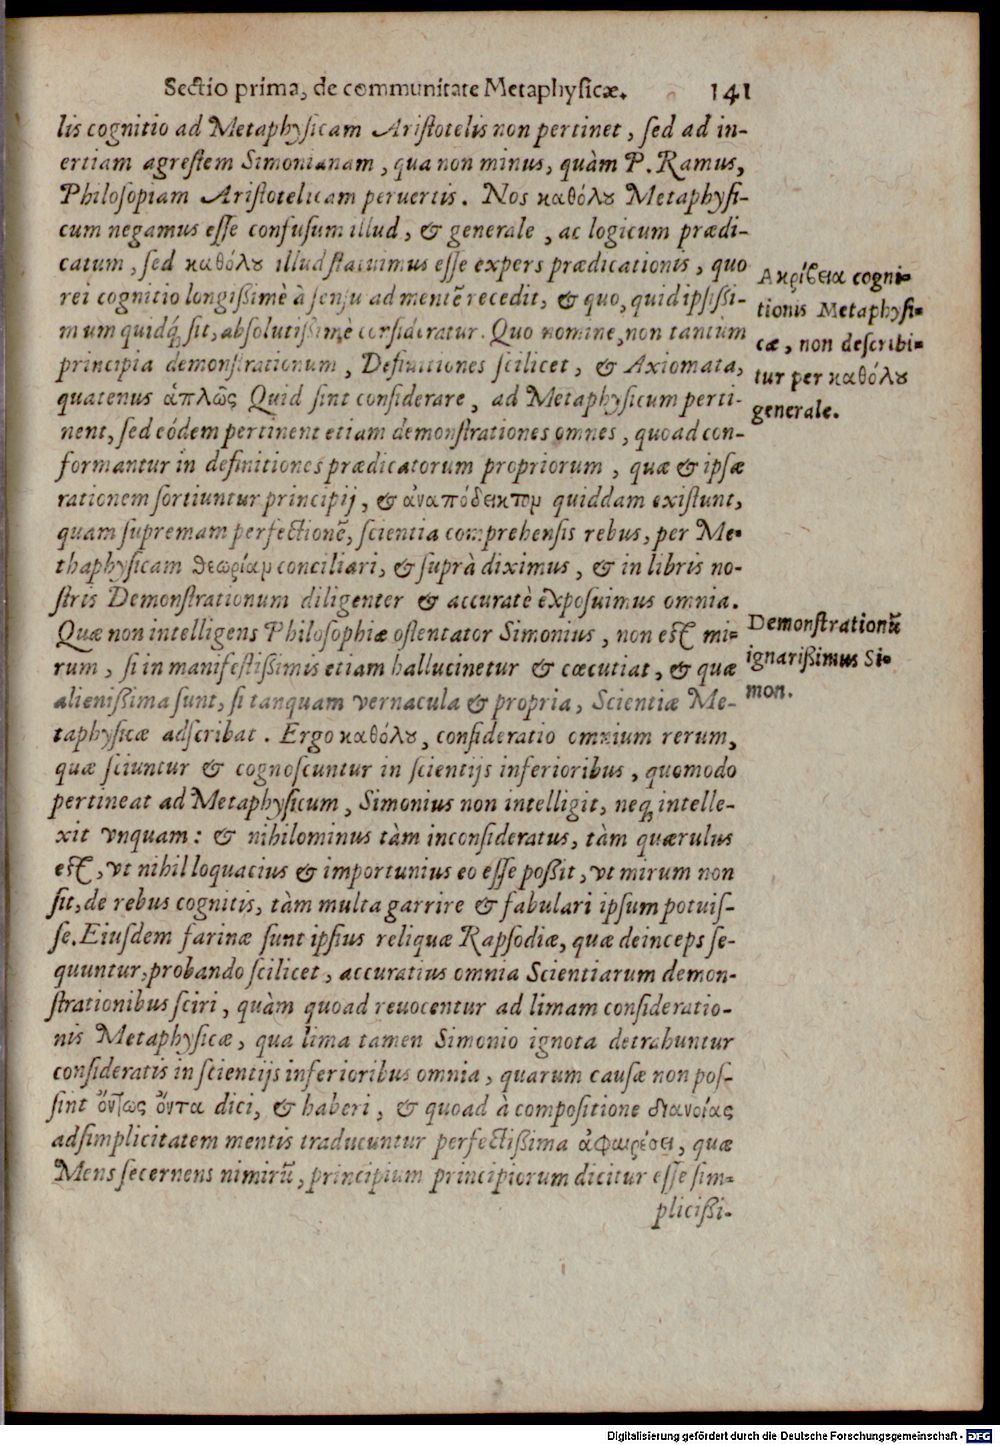 Sectio prima, de communitate Metaphysicæ. 141
lis cognitio ad Metaphysicam Aristotelis non pertinet, sed ad in-
ertiam agrestem Simonianam, qua non minus, quàm P. Ramus,
Philosopiam Aristotelicam peruertis. Nos καθόλȣ Metaphysi-
cum negamus esse confusum illud, & generale, ac logicum prædi-
catum, sed καθόλȣ illud statuimus esse expers prædicationis, quo
rei cognitio longißimè à sensu ad mentē recedit, & quo, quid ipsißi-
mum quidq́; sit, absolutißimè consideratur. Quo nomine, non tantùm
principia demonstrationum, Definitiones scilicet, & Axiomata,
quatenus ἁπλῶς Quid sint considerare, ad Metaphysicum perti-
nent, sed eódem pertinent etiam demonstrationes omnes, quoad con-
formantur in definitiones prædicatorum propriorum, quæ & ipsæ
rationem sortiuntur principij, & ἀναπόδεικτον quiddam existunt,
quam supremam perfectionē, scientia comprehensis rebus, per Me-
thaphysicam θεωρίαν conciliari, & suprà diximus, & in libris no-
stris Demonstrationum diligenter & accuratè exposuimus omnia.
Quæ non intelligens Philosophiæ ostentator Simonius, non est mi-
rum, si in manifestißimis etiam hallucinetur & cœcutiat, & quæ
alienißima sunt, si tanquam vernacula & propria, Scientiæ Me-
taphysicæ adscribat. Ergo καθόλȣ, consideratio omnium rerum,
quæ sciuntur & cognoscuntur in scientijs inferioribus, quomodo
pertineat ad Metaphysicum, Simonius non intelligit, neq; intelle-
xit vnquam: & nihilominus tàm inconsideratus, tàm quærulus
est, vt nihil loquacius & importunius eo esse poßit, vt mirum non
sit, de rebus cognitis, tàm multa garrire & fabulari ipsum potuis-
se. Eiusdem farinæ sunt ipsius reliquæ Rapsodiæ, quæ deinceps se-
quuntur, probando scilicet, accuratius omnia Scientiarum demon-
strationibus sciri, quàm quoad reuocentur ad limam consideratio-
nis Metaphysicæ, qua lima tamen Simonio ignota detrahuntur
consideratis in scientijs inferioribus omnia, quarum causæ non pos-
sint ὄντως ὄντα dici, & haberi, & quoad à compositione διανοίας
ad simplicitatem mentis traducuntur perfectißima ἀφαιρέσει, quæ
Mens secernens nimirū, principium principiorum dicitur esse sim-
plicißi-
Ακρίβεια cogni-
tionis Metaphysi-
cæ, non describi-
tur per καθόλȣ
generale.
Demonstrationū
ignarißimus Si-
mon.
Digitalisierung gefördert durch die Deutsche Forschungsgemeinschaft - DFG